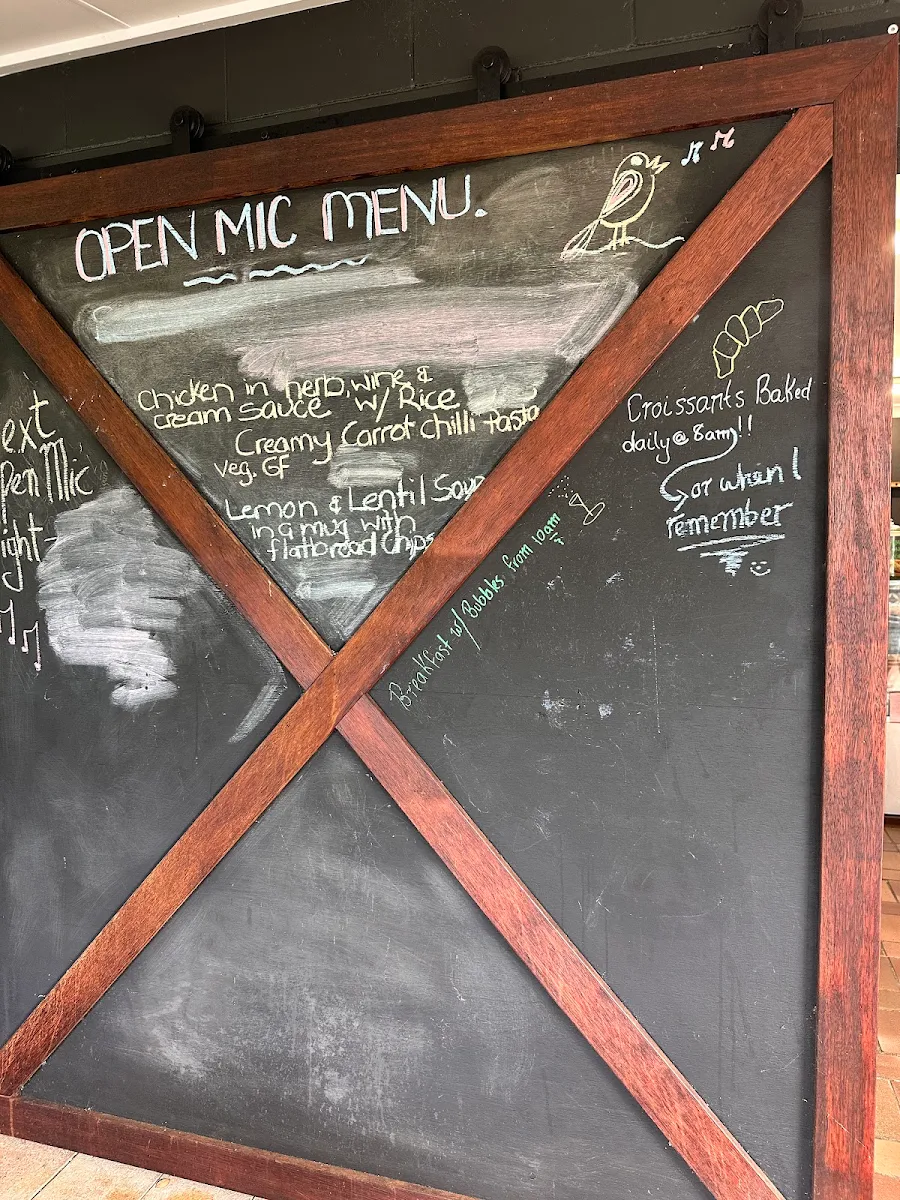 OPEN MIC MENU.
Chicken in herb, wine &
cream sauce w/ Rice
Creamy Carrot Chilli Pasta
Veg. GF
Lemon & Lentil Soup
in a mug with
flatbread chips
ext
pen Mic
ight
Croissants Baked
daily @ 8am!!
or when I
remember
Breakfast w/ Bubbles from 10am